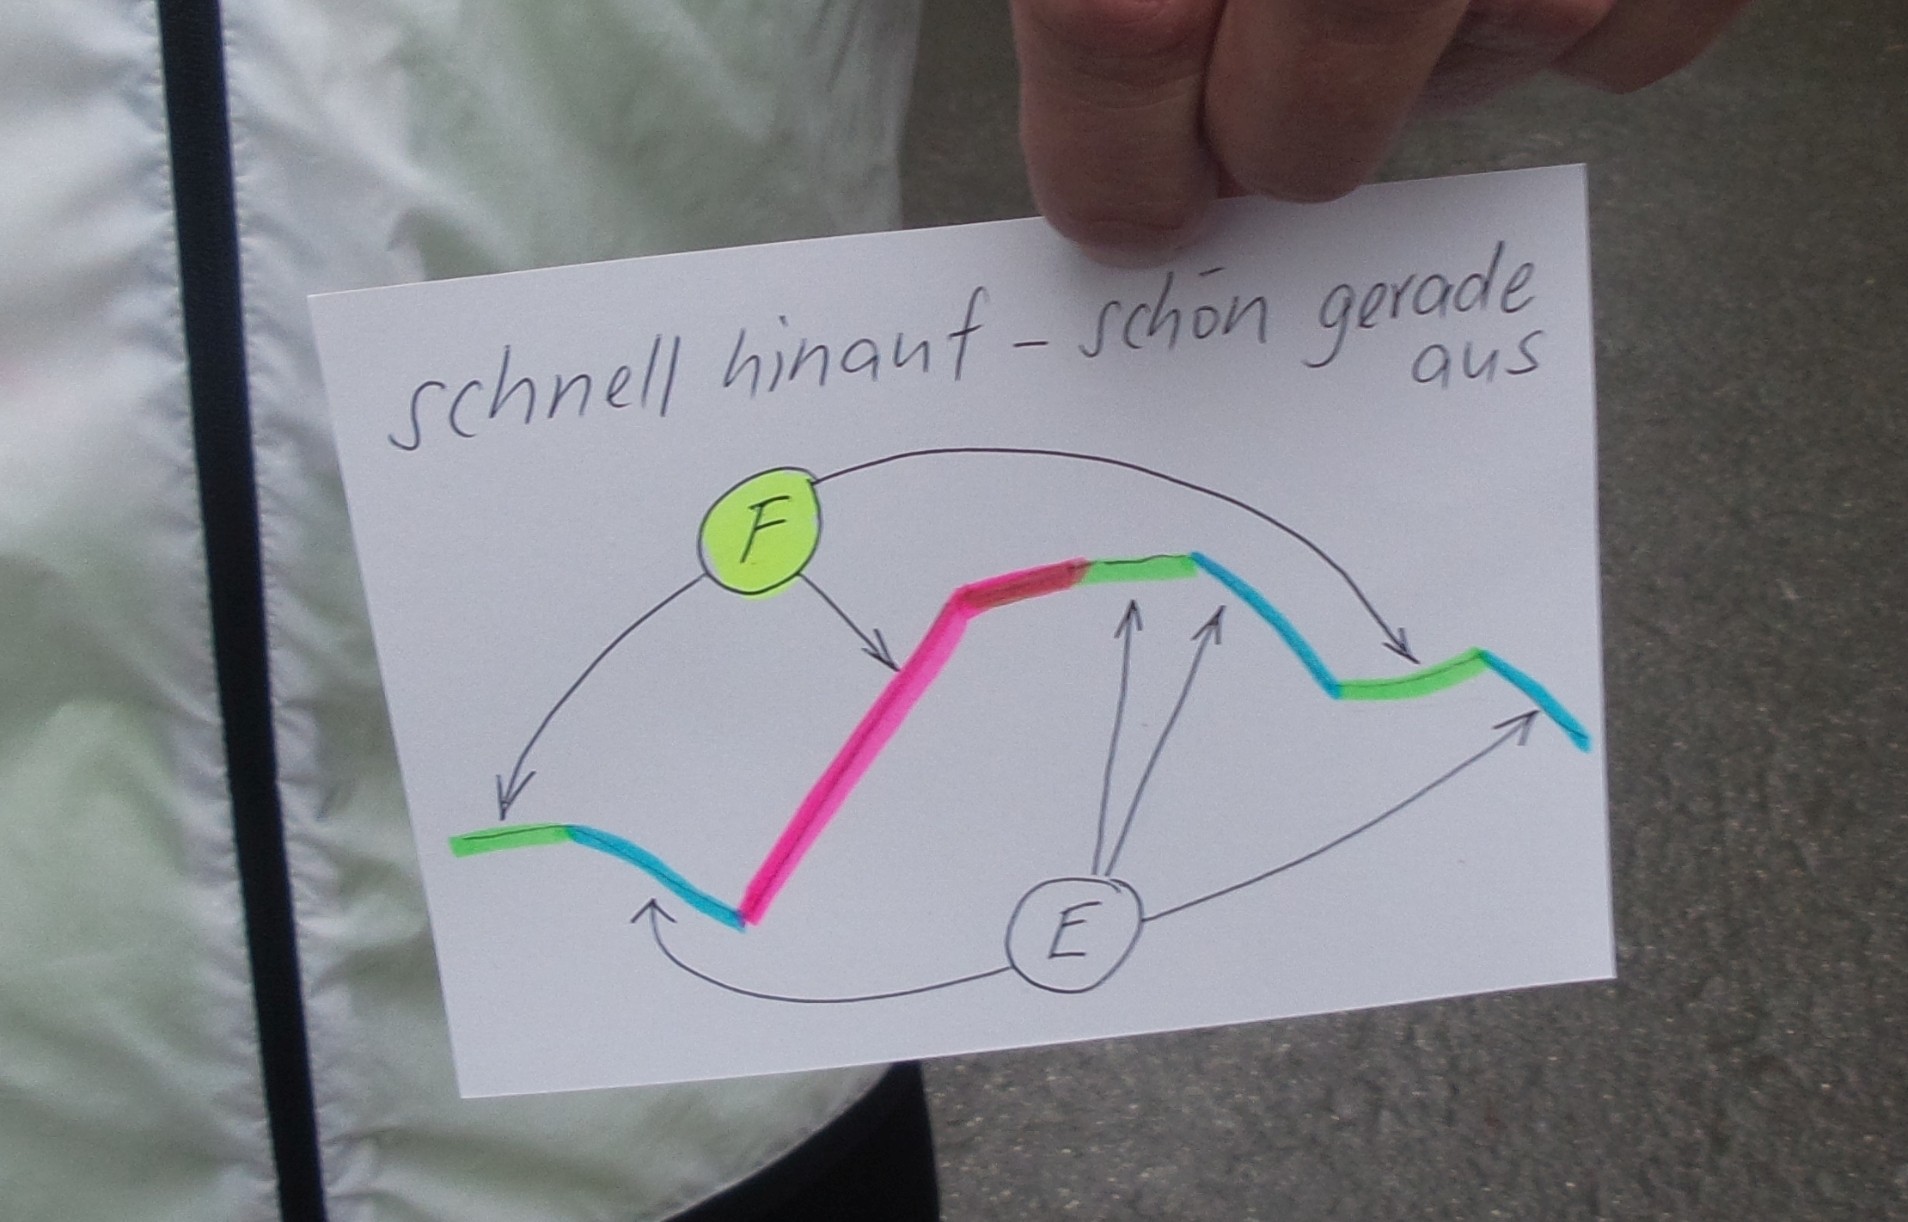 schnell hinauf - schön gerade
aus
F
E